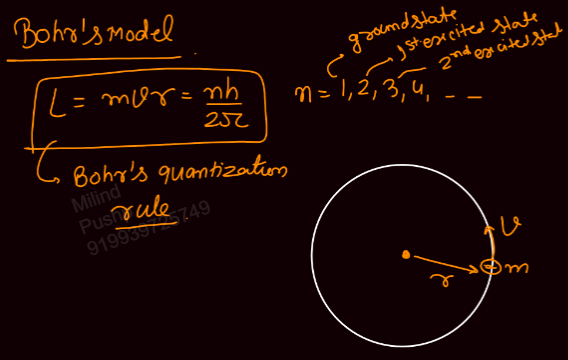 Bohr's model
L = mvr = nh/2π
Bohr's quantization
rule
n = 1, 2, 3, 4, - -
ground state
1st exicited state
2nd exicited stat
v
m
r
Milind
Push
919939725749